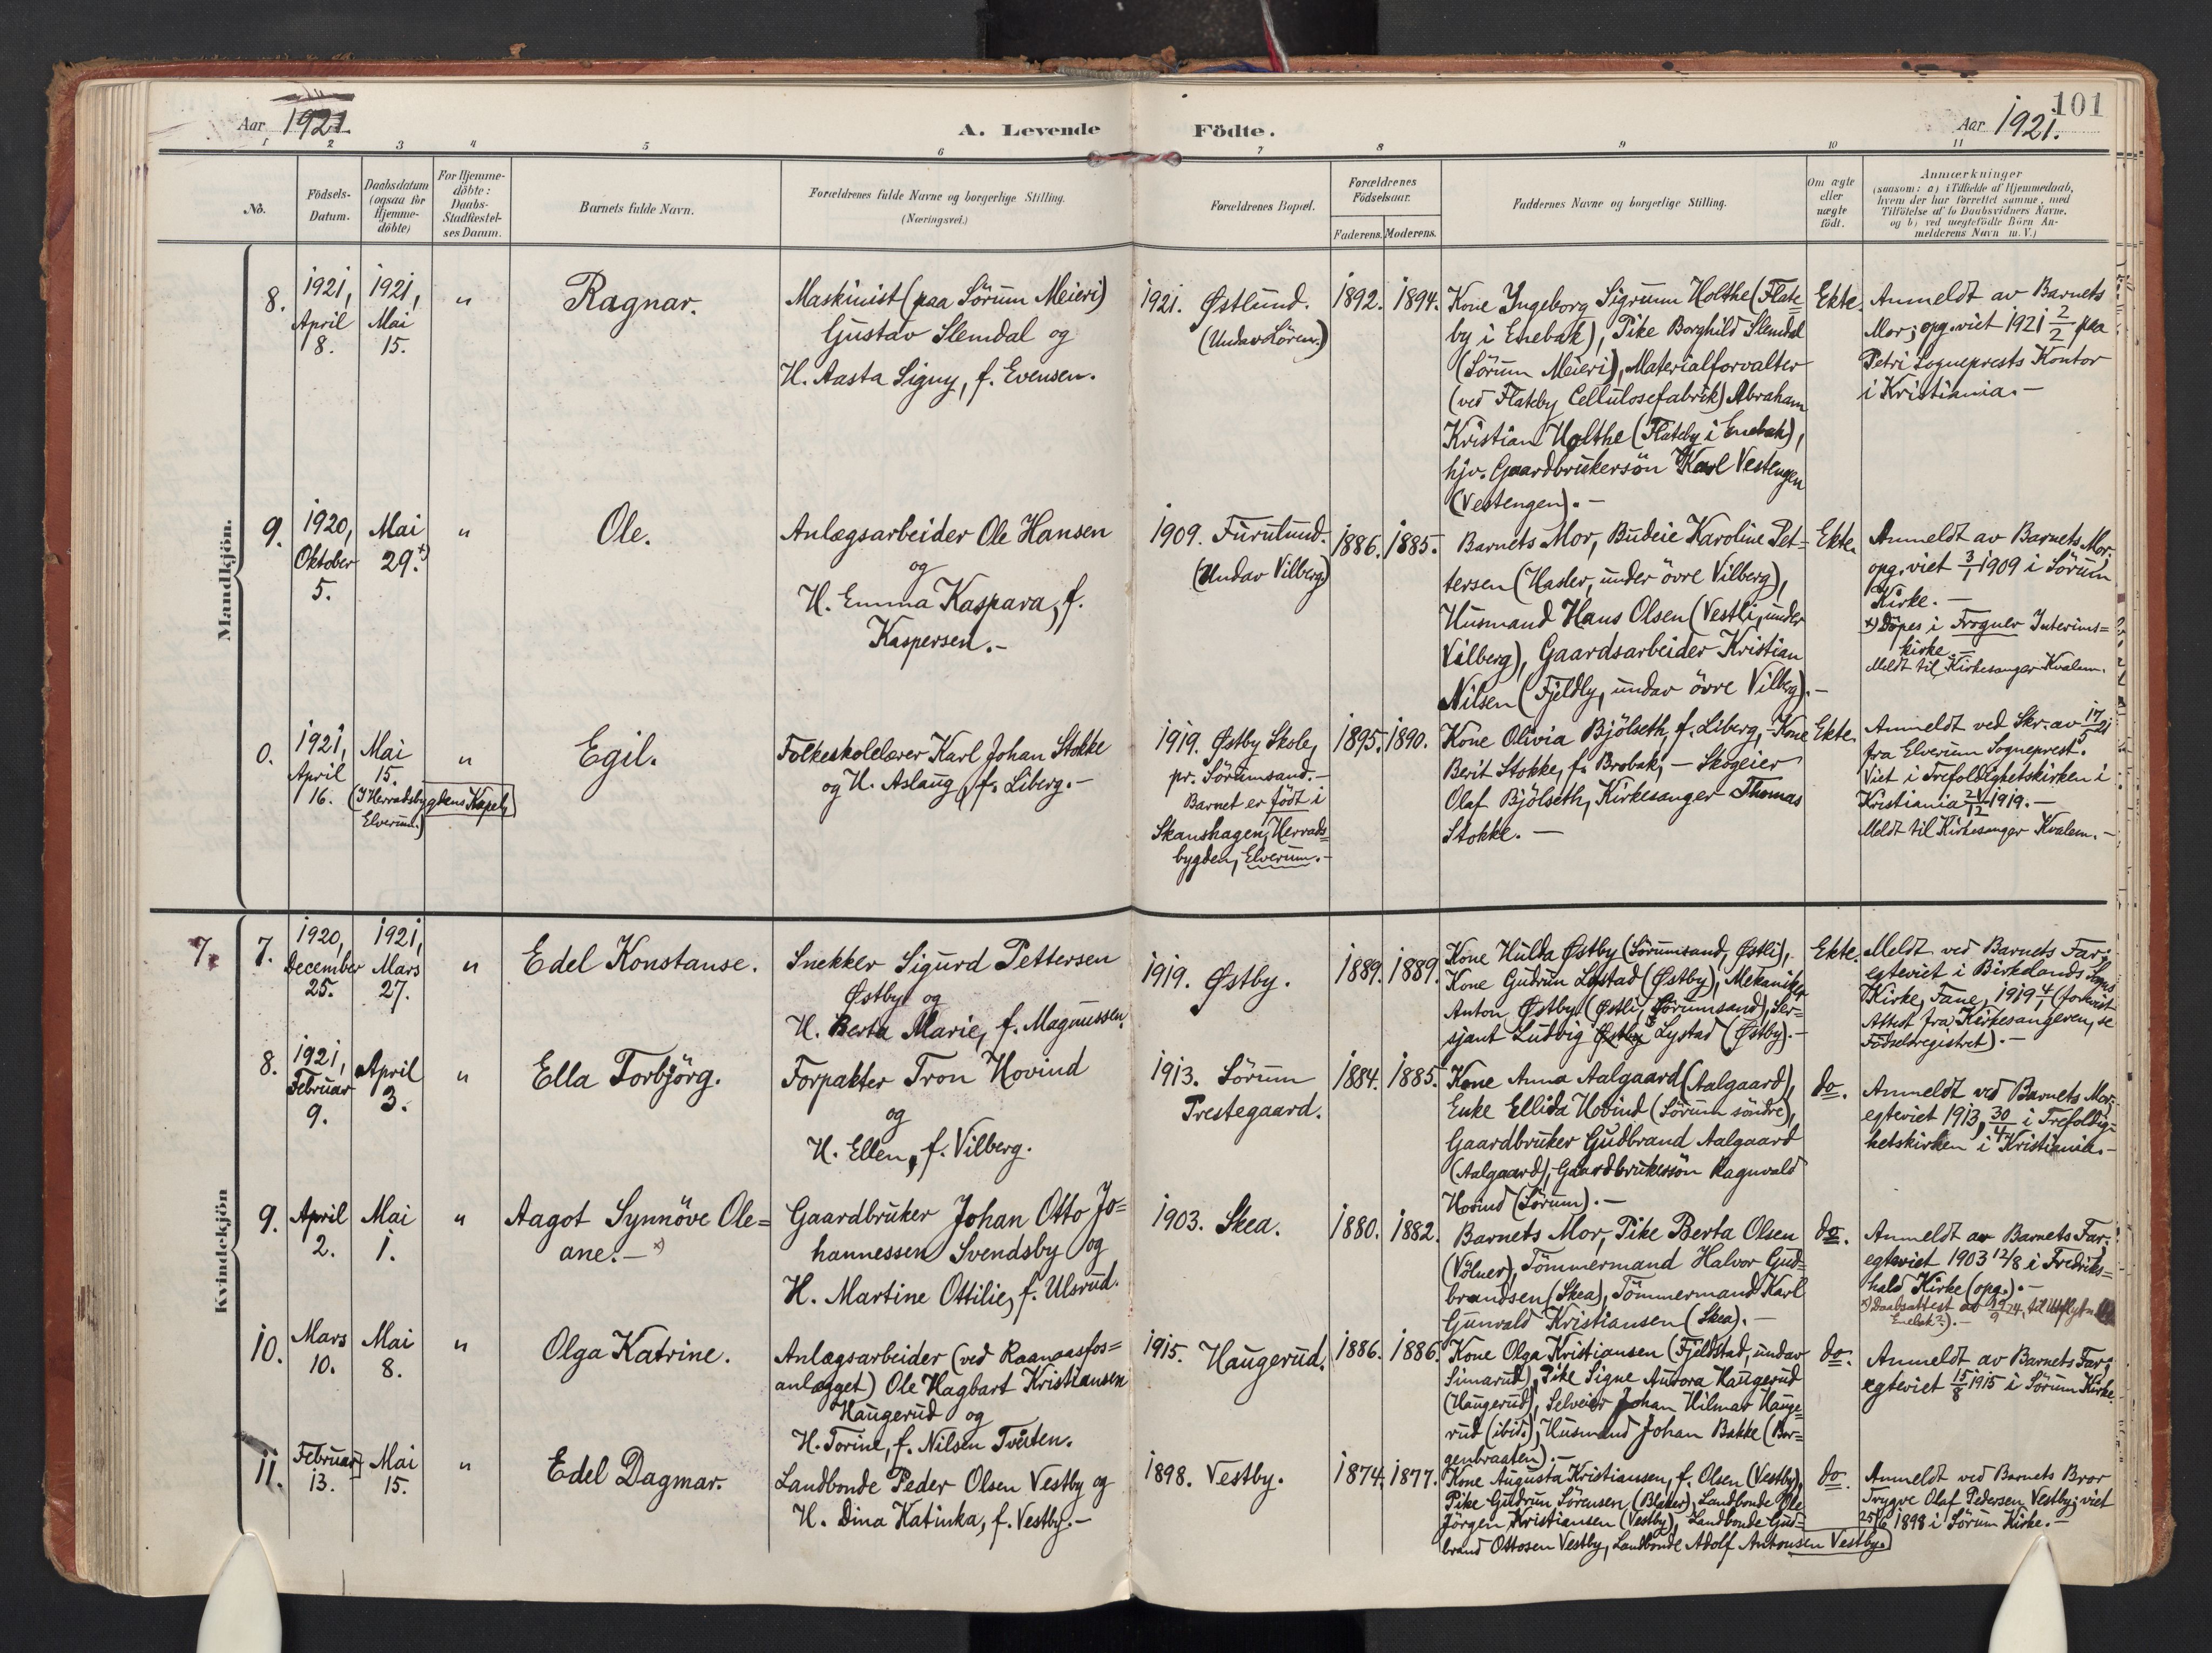 101
Aar 1921.
A. Levende Födte.
Aar 1921.
1 2 3 4 5 6 7 8 9 10 11
No.
Födsels-
Datum.
Daabsdatum
(ogsaa for
Hjemme-
döbte)
For Hjemme-
döbte:
Daabs-
Stadfæstel-
ses Datum.
Barnets fulde Navn.
Forældrenes fulde Navne og borgerlige Stilling.
(Næringsvei.)
Forældrenes Bopæl.
Forældrenes
Födselsaar.
Faderens. Moderens.
Faddernes Navne og borgerlige Stilling.
Om ægte
eller
uægte
födt.
Anmærkninger
(saasom: a) i Tilfælde af Hjemmedaab,
hvem der har forrettet samme, med
Tilföielse af to Daabsvidners Navne.
og b) ved uægtefödte Börn An-
melderens Navn m. V.)
Mandkjön.
8.
1921,
April
18.
1921,
Mai
15.
"
Ragnar.
Maskinist (paa Sörum Meieri)
Gustav Slemdal og
H. Aasta Signy, f. Evensen.
1921. Østlund.
(Undav Sörum.)
1892. 1894.
Kone Yngeborg Sigrunn Holthe (Flate=
by i Enebak), Pike Borghild Slemdal
(Sörum Meieri), Materialforvalter
(ved Flateby Cellulosefabrik) Abraham
Kristian Holthe (Flateby i Enebak),
hjv. Gaardbrukersön Karl Vestengen
(Vestengen). -
Ekte.
Anmeldt av Barnets
Mor; opg. viet 1921 2/2 paa
Petri Sogneprests Kontor
i Kristiania. -
9.
1920,
Oktober
5.
Mai
29. x)
"
Ole.
Anlægsarbeider Ole Hansen
og
H. Emma Kaspara, f.
Kaspersen. -
1909. Furulund.
(Undav Vilberg)
1886. 1885.
Barnets Mor, Budeie Karoline Pet=
tersen (Hasler, under övre Vilberg),
Husmand Hans Olsen (Vestli, under
Vilberg), Gaardsarbeider Kristian
Nilsen (Fjeldly, undav övre Vilberg). -
Ekte.
Anmeldt av Barnets Mor;
opg. viet 3/1 1909 i Sörum
Kirke. -
x) Döpes i Frogner Interims=
kirke. -
Meldt til Kirkesanger Kvalem.
0.
1921,
April
16.
Mai
15.
(I Herradsbygdens Kapel,
Elverum.)
"
Egil.
Folkeskolelærer Karl Johan Stokke
og H. Aslaug, f. Liberg. -
1919. Østby Skole,
pr. Sörumsand. -
Barnet er födt i
Skanshagen, Herrads=
bygden, Elverum. -
1895. 1890.
Kone Olivia Bjölseth, f. Liberg, - Kone
Berit Stokke, f. Brobak, - Skogeier
Olaf Bjölseth, Kirkesanger Thomas
Stokke. -
Ekte.
Anmeldt ved Skr. av 17/5 21
fra Elverum Sogneprest.
Viet i Trefoldighetskirken i
Kristiania 1919. -
Meldt til Kirkesanger Kvalem. -
Kvindekjön
7.
7.
1920,
December
25.
1921,
Mars
27.
"
Edel Konstanse.
Snekker Sigurd Pettersen
Østby og
H. Berta Marie, f. Magnussen.
1919. Østby.
1889. 1889.
Kone Hulda Østby (Sörumsand, Østli),
Kone Gudrun Lystad (Østby), Mekaniker
Anton Østby (Østli, Sörumsand), Ser=
sjant Ludvig Østby Lystad (Østby). -
Ekte.
Meldt ved Barnets Far;
egteviet i Birkelands Sogns
Kirke, Fane, 1919 4/1 (forevist
Attest fra Kirkesangeren, se
Födselsregistret). -
8.
1921,
Februar
9.
April
3.
"
Ella Torbjörg.
Forpakter Tron Hovind
og
H. Ellen, f. Vilberg.
1913. Sörum
Prestegaard.
1884. 1885.
Kone Anna Aalgaard (Aalgaard),
Enke Ellida Hovind (Sörum söndre),
Gaardbruker Gudbrand Aalgaard
(Aalgaard), Gaardbrukersön Ragnvald
Hovind (Sörum). -
do.
Anmeldt ved Barnets Mor;
egteviet 1913, 30/4 i Trefoldig=
hetskirken i Kristiania. -
9.
April
2.
Mai
1.
"
Aagot Synnöve Ole=
ane. - x)
Gaardbruker Johan Otto Jo=
hannessen Svendsby og
H. Martine Ottilie, f. Ulsrud.
1903. Skea.
1880. 1882.
Barnets Mor, Pike Berta Olsen
(Völner), Tömmermand Halvor Gud=
brandsen (Skea), Tömmermand Karl
Gunvald Kristiansen (Skea). -
do.
Anmeldt av Barnets Far;
egteviet 1903 12/8 i Fredriks=
hald Kirke (opg.). -
x) Daabsattest av 19/9 24, til
Enebak?). -
10.
Mars
10.
Mai
8.
"
Olga Katrine.
Anlægsarbeider (ved Raanaasfos=
anlægget) Ole Hagbart Kristiansen
Haugerud og
H. Torine, f. Nilsen Tveiten.
1915. Haugerud.
1886. 1886.
Kone Olga Kristiansen (Fjeldstad, undav
Simarud), Pike Signe Aurora Haugerud
(Haugerud), Selveier Johan Hilmar Hauge=
rud (ibid.), Husmand Johan Bakke (Bor=
genbraaten). -
do.
Anmeldt av Barnets Far;
egteviet 15/8 1915 i Sörum Kirke.
11.
Februar
13.
Mai
15.
"
Edel Dagmar.
Landbonde Peder Olsen Vestby og
H. Dina Katinka, f. Vestby. -
1898. Vestby.
1874. 1877.
Kone Augusta Kristiansen, f. Olsen (Vestby),
Pike Gudrun Sörensen (Blaker), Landbonde Ole
Jörgen Kristiansen (Vestby), Landbonde Gud=
brand Ottosen Vestby, Landbonde Adolf Antonsen Vestby.
do.
Anmeldt ved Barnets Bror
Trygve Olaf Pedersen Vestby; viet
25/6 1898 i Sörum Kirke. -